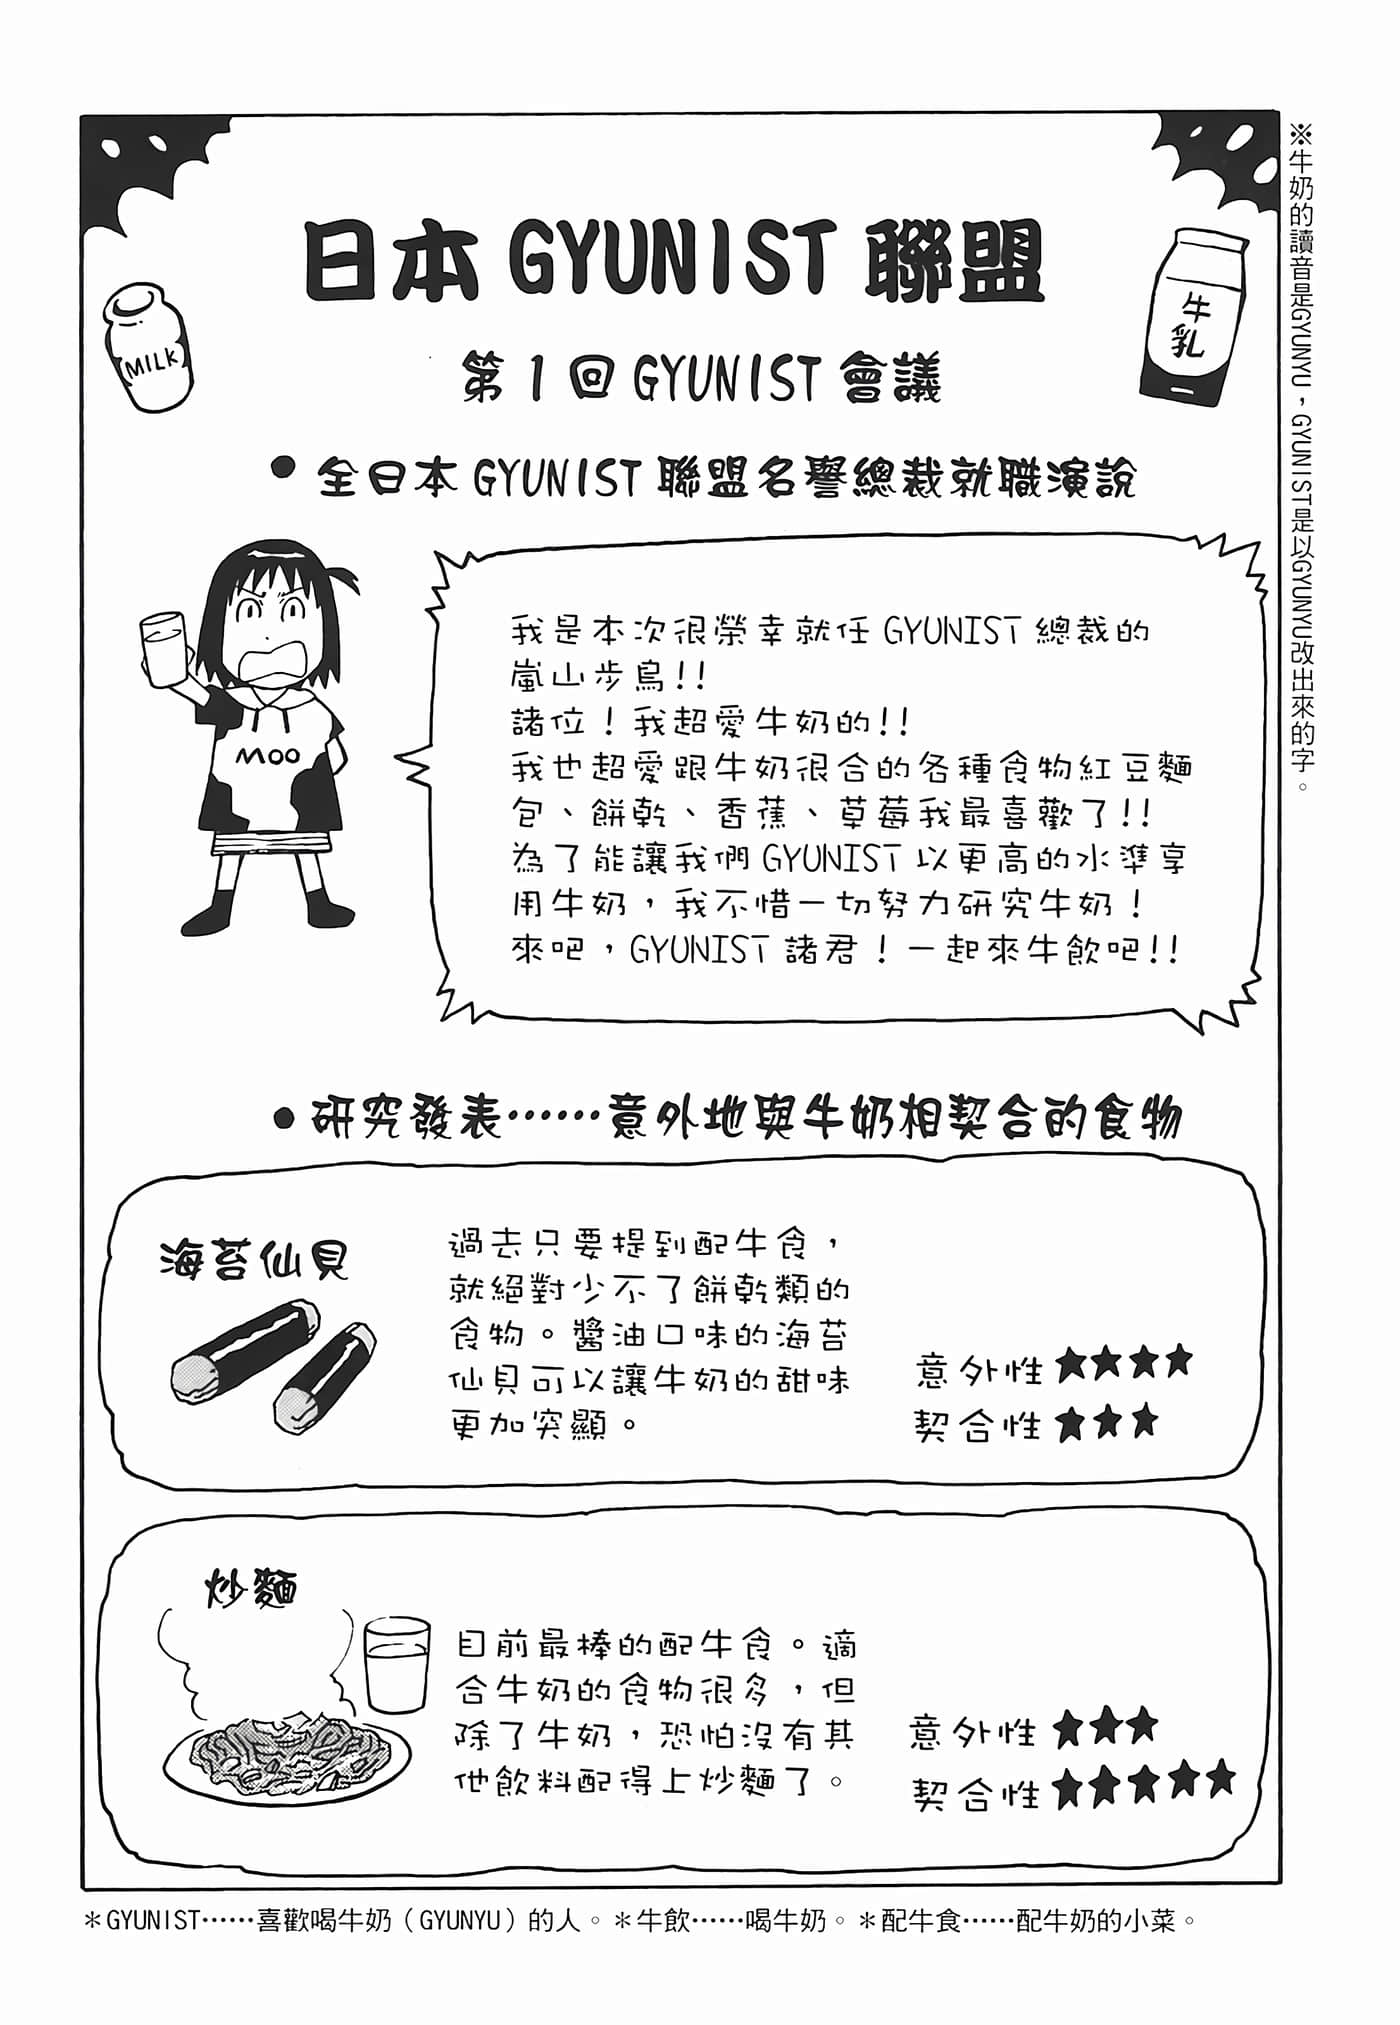 ※牛奶的讀音是GYUNYU，GYUNIST是以GYUNYU改出來的字。
日本 GYUNIST 聯盟
MILK
牛乳
第1回 GYUNIST 會議
●全日本 GYUNIST 聯盟名譽總裁就職演說
MOO
我是本次很榮幸就任 GYUNIST 總裁的
嵐山步鳥!!
諸位！我超愛牛奶的!!
我也超愛跟牛奶很合的各種食物紅豆麵
包、餅乾、香蕉、草莓我最喜歡了!!
為了能讓我們 GYUNIST 以更高的水準享
用牛奶，我不惜一切努力研究牛奶！
來吧，GYUNIST 諸君！一起來牛飲吧!!
●研究發表……意外地與牛奶相契合的食物
海苔仙貝
過去只要提到配牛食，
就絕對少不了餅乾類的
食物。醬油口味的海苔
仙貝可以讓牛奶的甜味
更加突顯。
意外性★★★★
契合性★★★
炒麵
目前最棒的配牛食。適
合牛奶的食物很多，但
除了牛奶，恐怕沒有其
他飲料配得上炒麵了。
意外性★★★
契合性★★★★★
＊GYUNIST……喜歡喝牛奶（GYUNYU）的人。＊牛飲……喝牛奶。＊配牛食……配牛奶的小菜。